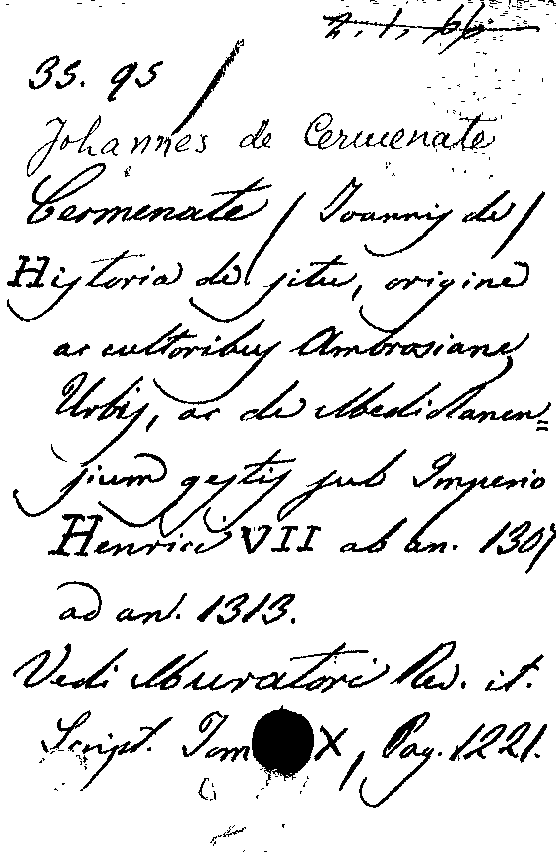 2. 1. 66
33. 95
Johannes de Cermenate
Cermenate / Joannis de /
Historia de situ, origine
ac cultoribus Ambrosiane
Urbis, ac de Mediolanen=
sium gestis sub Imperio
Henrici VII ab an. 1307
ad an. 1313.
Vedi Muratori Rer. it.
Script. Tom X, Pag. 1221.